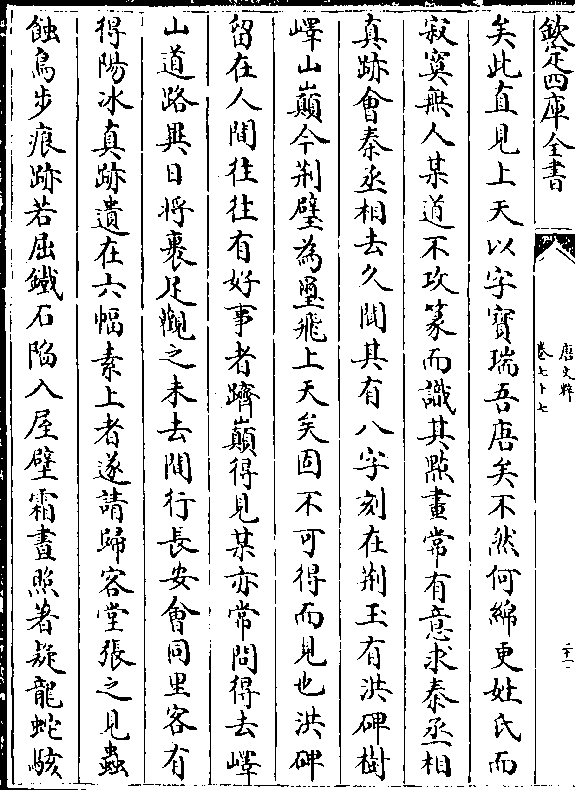 欽定四庫全書
唐文粹
卷七十七
矣此直見上天以字寳瑞吾唐矣不然何綿更姓氏而
寂寞無人某道不攻篆而識其㸃畫常有意求秦丞相
真跡會秦丞相去久聞其有八字刻在荆玉有洪碑樹
嶧山巔今荆璧為璽飛上天矣固不可得而見也洪碑
留在人間往往有好事者躋巔得見某亦常問得去嶧
山道路異日將裹足觀之未去間行長安會同里客有
得陽冰真跡遺在六幅素上者遂請歸客堂張之見蟲
蝕鳥步痕跡若屈鐵石陷入屋壁霜晝照著疑龍蛇駭